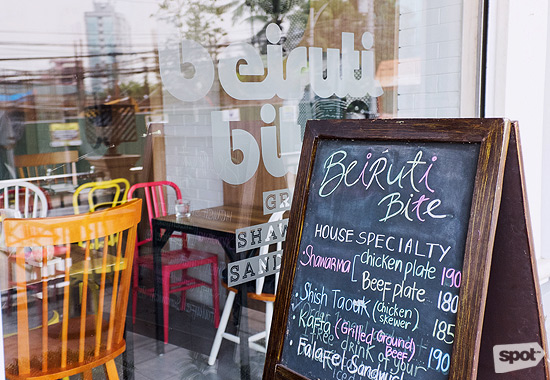 beiruti
bi
GR
SHAW
SAND
BEIRUTI
BITE
HOUSE SPECIALTY
• Shawarma [ Chicken plate 190
Beef plate 180
• Shish Taouk (Chicken skewer) 185
• Kafta (Grilled Ground Beef) 190
• Falafel Sandwich
free drink of your
Iced
spot